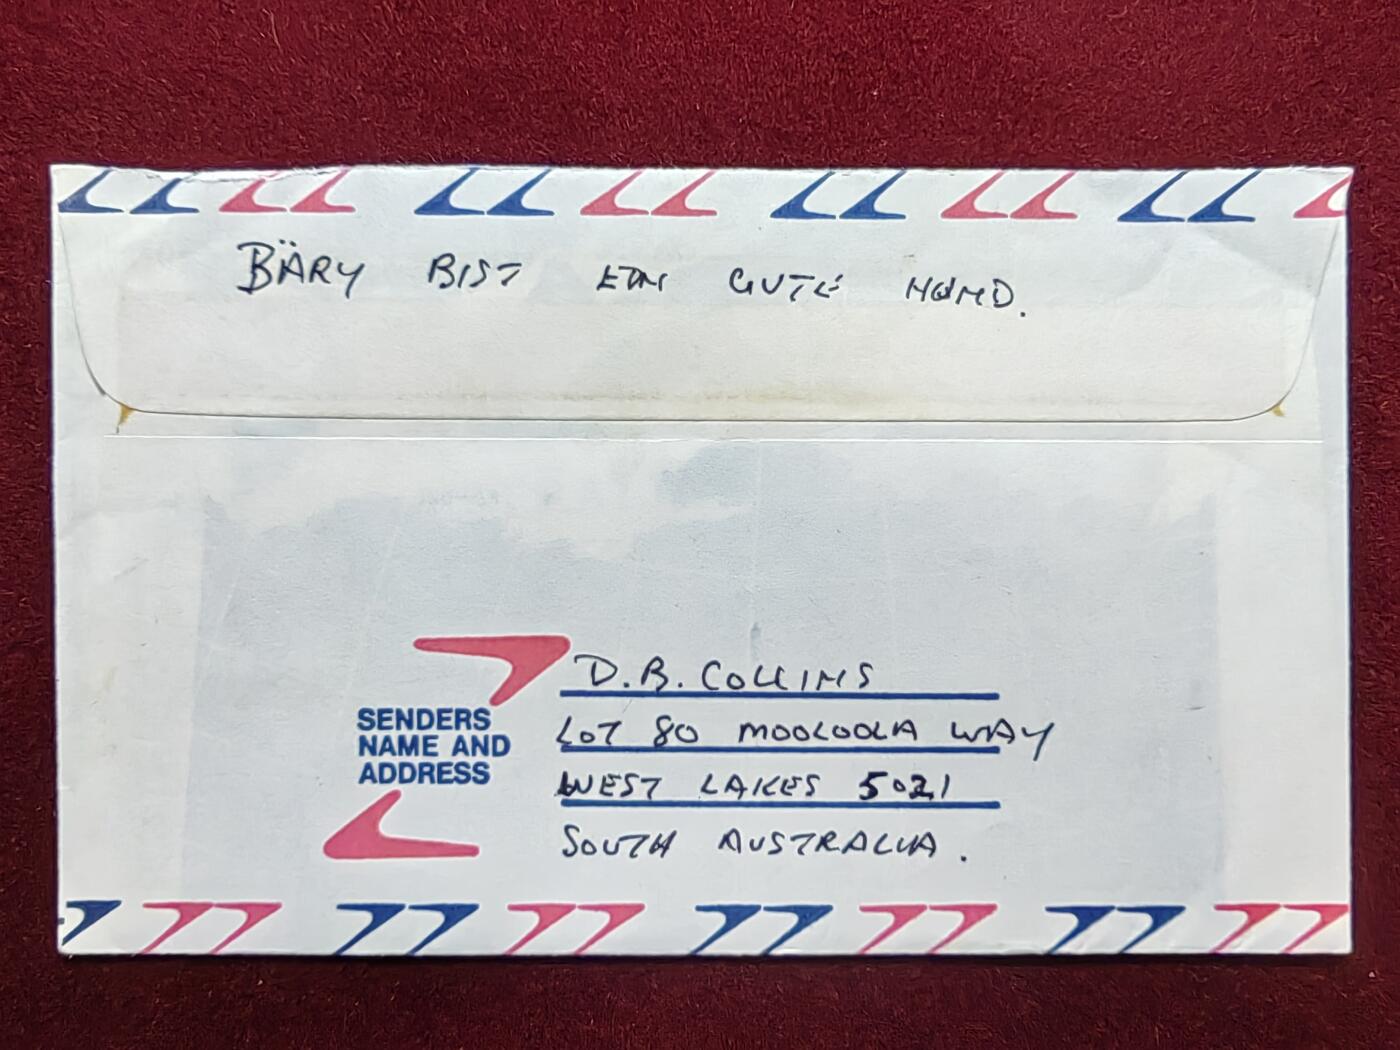 BÄRY BIST EIN GUTE HUND.
D.B. COLLINS
SENDERS
NAME AND
ADDRESS
LOT 80 MOOLOOLA WAY
WEST LAKES 5021
SOUTH AUSTRALIA.